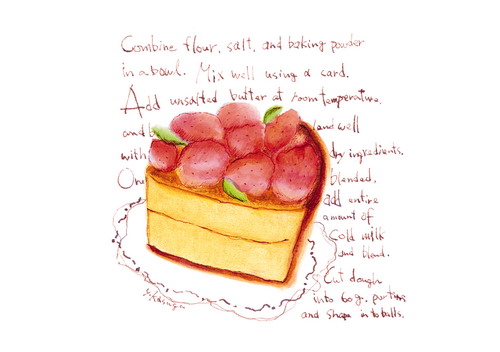 Combine flour, salt, and baking powder
in a bowl. Mix well using a card.
Add unsalted butter at room temperature,
and b and well
with dry ingredients.
On blended,
add entire
amount of
Cold milk
and blend.
Cut dough
into 60g. portins
and shape in to balls.